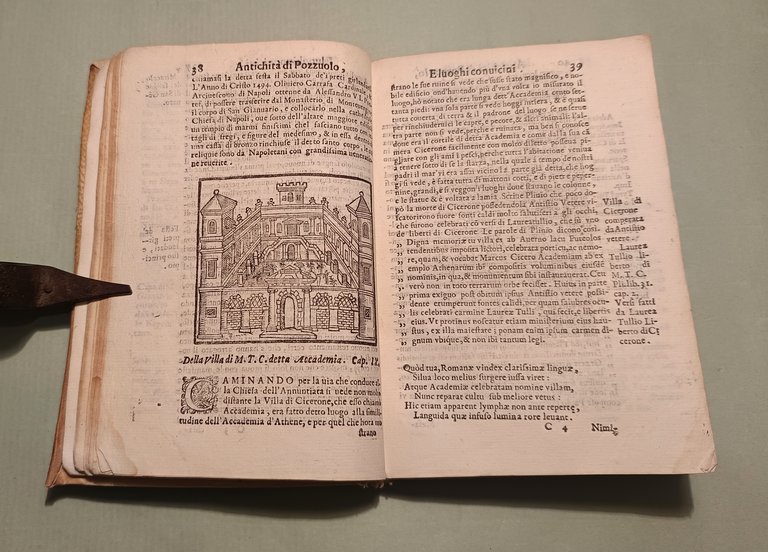 38 Antichità di Pozzuolo,
chiamasi la detta festa il Sabbato de'i preti girlandati.
L'Anno di Cristo 1494. Oliuiero Carrafa Cardinal,
Arciuescouo di Napoli ottenne da Alessandro VI.
di posser trasferire dal Monasterio di
il corpo di San Gianuario, e collocarlo nella
Chiesa di Napoli, oue sotto dell'altare maggiore edificò
un tempio di marmi finissimi chel fasciano tutto con
tagli di fregi, e figure del medesimo, & in essa dentro
una cassa di bronzo rinchiuse il detto santo corpo, le cui
reliquie sono da Napoletani con grandissima
ne reuerite.
Della Villa di M. T. C. detta Accademia. Cap. IX.
CAMINANDO per la uia che conduce al-
la Chiesa dell'Annuntiata si vede non molto
distante la Villa di Cicerone, che esso chiamò
Accademia, era fatto detto luogo alla simili-
tudine dell'Accademia d'Athene, e per quel che hora mo-
strano
E luoghi conuicini. 39
strano le sue ruine si vede che fosse stato magnifico, e no-
bile edificio ond'hauendo più d'vna volta io misurato il
luogo, hò notato che era lunga dett'Accademia cento set-
tanta piedi: vna sola parte si vede hoggi intiera, & è quasi
tutta couerta di terra & il padrone del luogo se ne serue
per rinchiuderui le capre, e pecore, & altri animali: l'al-
tra parte non si vede, perche è ruinata, ma ben si conosce
doue era il cortile di detta Accademia e come dalla sua ca
mera Cicerone facilmente con molto diletto posseua pi-
gliare con gli ami i pesci, perche tutta l'habitatione veniua
à tenere sotto di se la stanza, nella quale à tempo de nostri
padri il mar vi era assai vicino la parte già detta, che hog
gi si vede, è fatta tutta di mattoni cotti, e di pietre peper-
nine, grandi, e si veggon'i luoghi doue stauano le colonne,
e le statue & è voltata a lamia Scriue Plinio che poco do
pò la morte di Cicerone possedendola Antistio Vetere vi
scaturirono fuore fonti caldi molto salutiferi a gli occhi,
che furono celebrati co versi di Laurea Tullio, che fù vno
de liberti di Cicerone. Le parole di Plinio dicono cosi.
„ Digna memoriæ tu villa est ab Auerno lacu Puteolos
„ tendentibus imposita littori, celebrata porticu, ac nemo-
„ re, quam, & vocabat Marcus Cicero Academiam ab ex
„ emplo Athenarum ibi compositis voluminibus eiusdẽ
„ nominis, in qua, & monumenta sibi instaurauerat. Ceu
„ verò non in toto terrarum orbe fecisset. Huius in parte
„ prima exiguo post obitum ipsius Antistio vetere possi-
„ dente erumperunt fontes calidi, per quam salubres ocu-
„ lis celebrati carmine Laureæ Tulli, qui fecit è libertis
„ eius. Vt protinus noscatur etiam ministerium eius hau
„ stus, ex illa maiestate; ponam enim ipsum carmen di-
„ gnum vbique, & non ibi tantum legi.
Villa di
Cicerone
comperata
da Antistio
vetere.
Laurea
Tullio li-
berto di
M. T. C.
Pli. lib. 31.
cap. 2.
Versi fatti
da Laurea
Tullio Li-
berto di Ci
cerone.
Quòd tua, Romanæ vindex clarissimæ linguæ,
Silua loco melius surgere iussa viret:
Atque Academiæ celebratam nomine villam,
Nunc reparat cultu sub meliore vetus:
Hic etiam apparent lymphæ non ante repertę,
Languida quæ infuso lumina rore leuant.
C 4 Nimi-